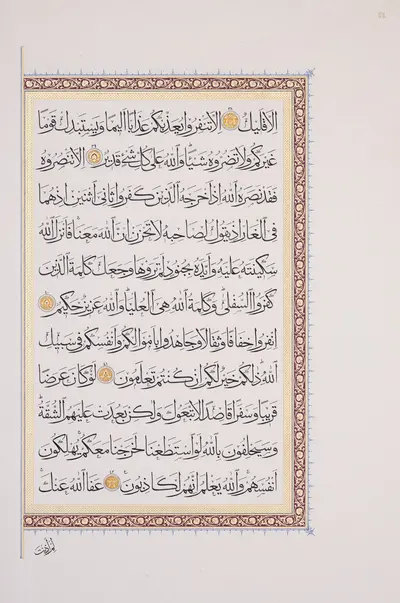 إلا قليل ۝ إلا تنفروا يعذبكم عذابا أليما ويستبدل قوما
غيركم ولا تضروه شيئا والله على كل شيء قدير ۝ إلا تنصروه
فقد نصره الله إذ أخرجه الذين كفروا ثاني اثنين إذ هما
في الغار إذ يقول لصاحبه لا تحزن إن الله معنا فأنزل الله
سكينته عليه وأيده بجنود لم تروها وجعل كلمة الذين
كفروا السفلى وكلمة الله هي العليا والله عزيز حكيم ۝
انفروا خفافا وثقالا وجاهدوا بأموالكم وأنفسكم في سبيل
الله ذلكم خير لكم إن كنتم تعلمون ۝ لو كان عرضا
قريبا وسفرا قاصدا لاتبعوك ولكن بعدت عليهم الشقة
وسيحلفون بالله لو استطعنا لخرجنا معكم يهلكون
أنفسهم والله يعلم إنهم لكاذبون ۝ عفا الله عنك
لم أذنت